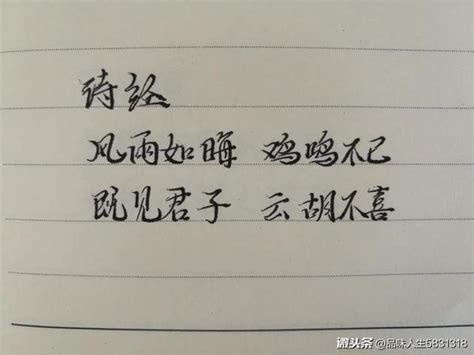 诗经
风雨如晦 鸡鸣不已
既见君子 云胡不喜
微头条 @品味人生5831318